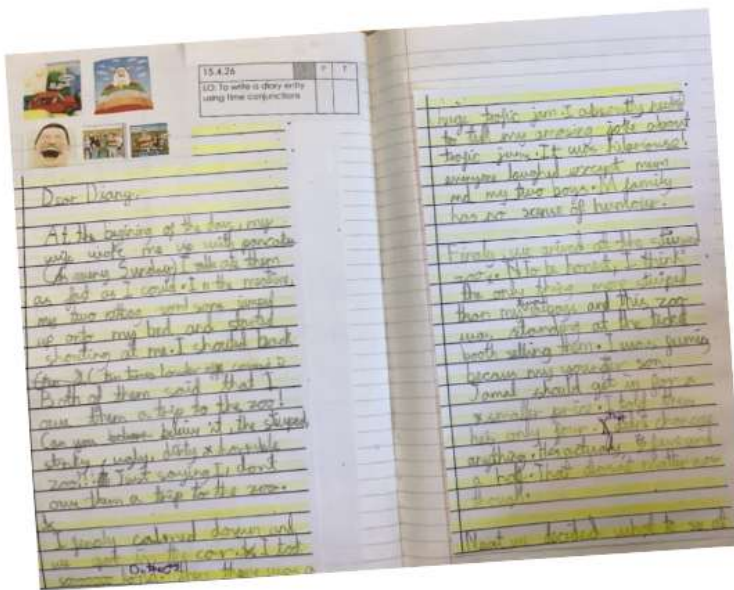 15.4.26
P T
LO: To write a diary entry
using time conjunctions
Dear Diary,
At the begining of the day, my
wife woke me up with pancakes
(As every Sunday) I ate them
as fast as I could. In the meantime
my two sons jumped
up onto my bed and started
shouting at me. I shouted back
Both of them said that I
owe them a trip to the zoo!
Can you believe it, the stuped
ugly, dirty horrible
zoo! Just saying I dont
owe them a trip to the zoo.
I finaly calmed down and
we got in the car. I
On the
then there was a
huge trafic jam. I
to tell my amazing joke about
trafic jam. It was
everyone laughed except mum
and my two boys. M family
has no sense of humour.
Finaly we arived at the stuped
zoo. To be honest, I think
the only thing more stuped
than my boys and this zoo
was standing at the ticket
booth selling them. I was
becaus my son,
Jamal should get in for a
smaller price. I told them
hes only four.
anything. Hes actualy five and
a half. That doesnt matter now
though.
Next we decided what to se at